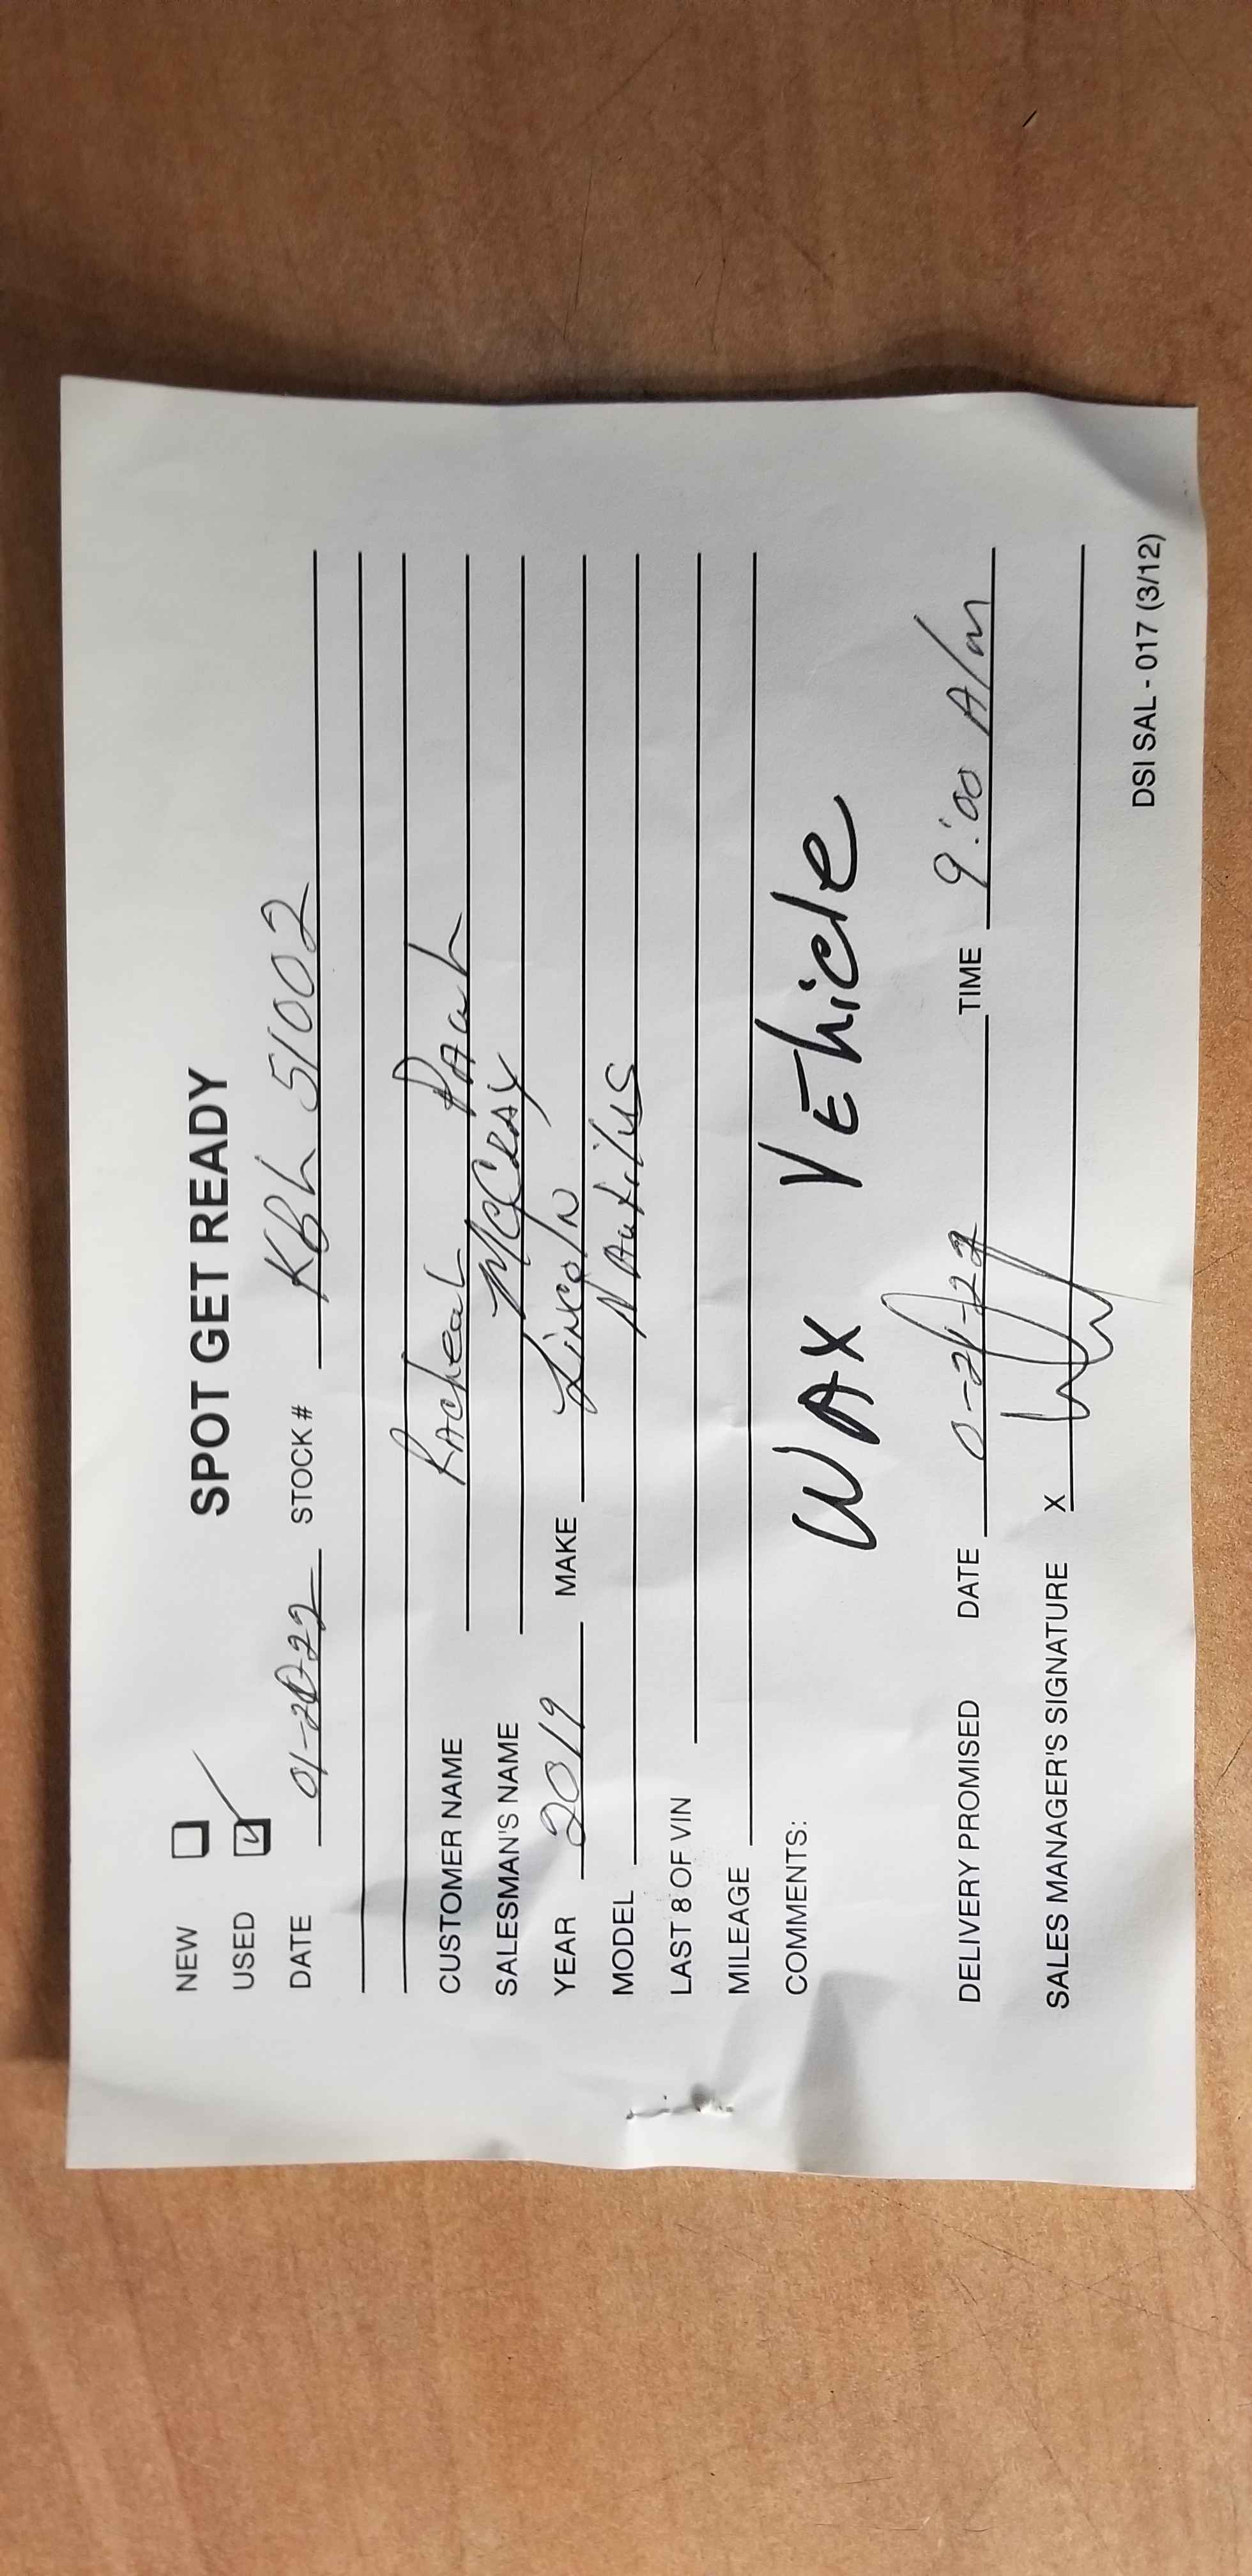 SPOT GET READY
NEW
USED
DATE 01-20-22 STOCK # KBL 51002
CUSTOMER NAME Racheal
SALESMAN'S NAME McCRAY
YEAR 2019 MAKE Lincoln
MODEL Nautilus
LAST 8 OF VIN
MILEAGE
COMMENTS:
WAX VEhicle
DELIVERY PROMISED DATE TIME 9:00 A/m
SALES MANAGER'S SIGNATURE X
DSI SAL - 017 (3/12)